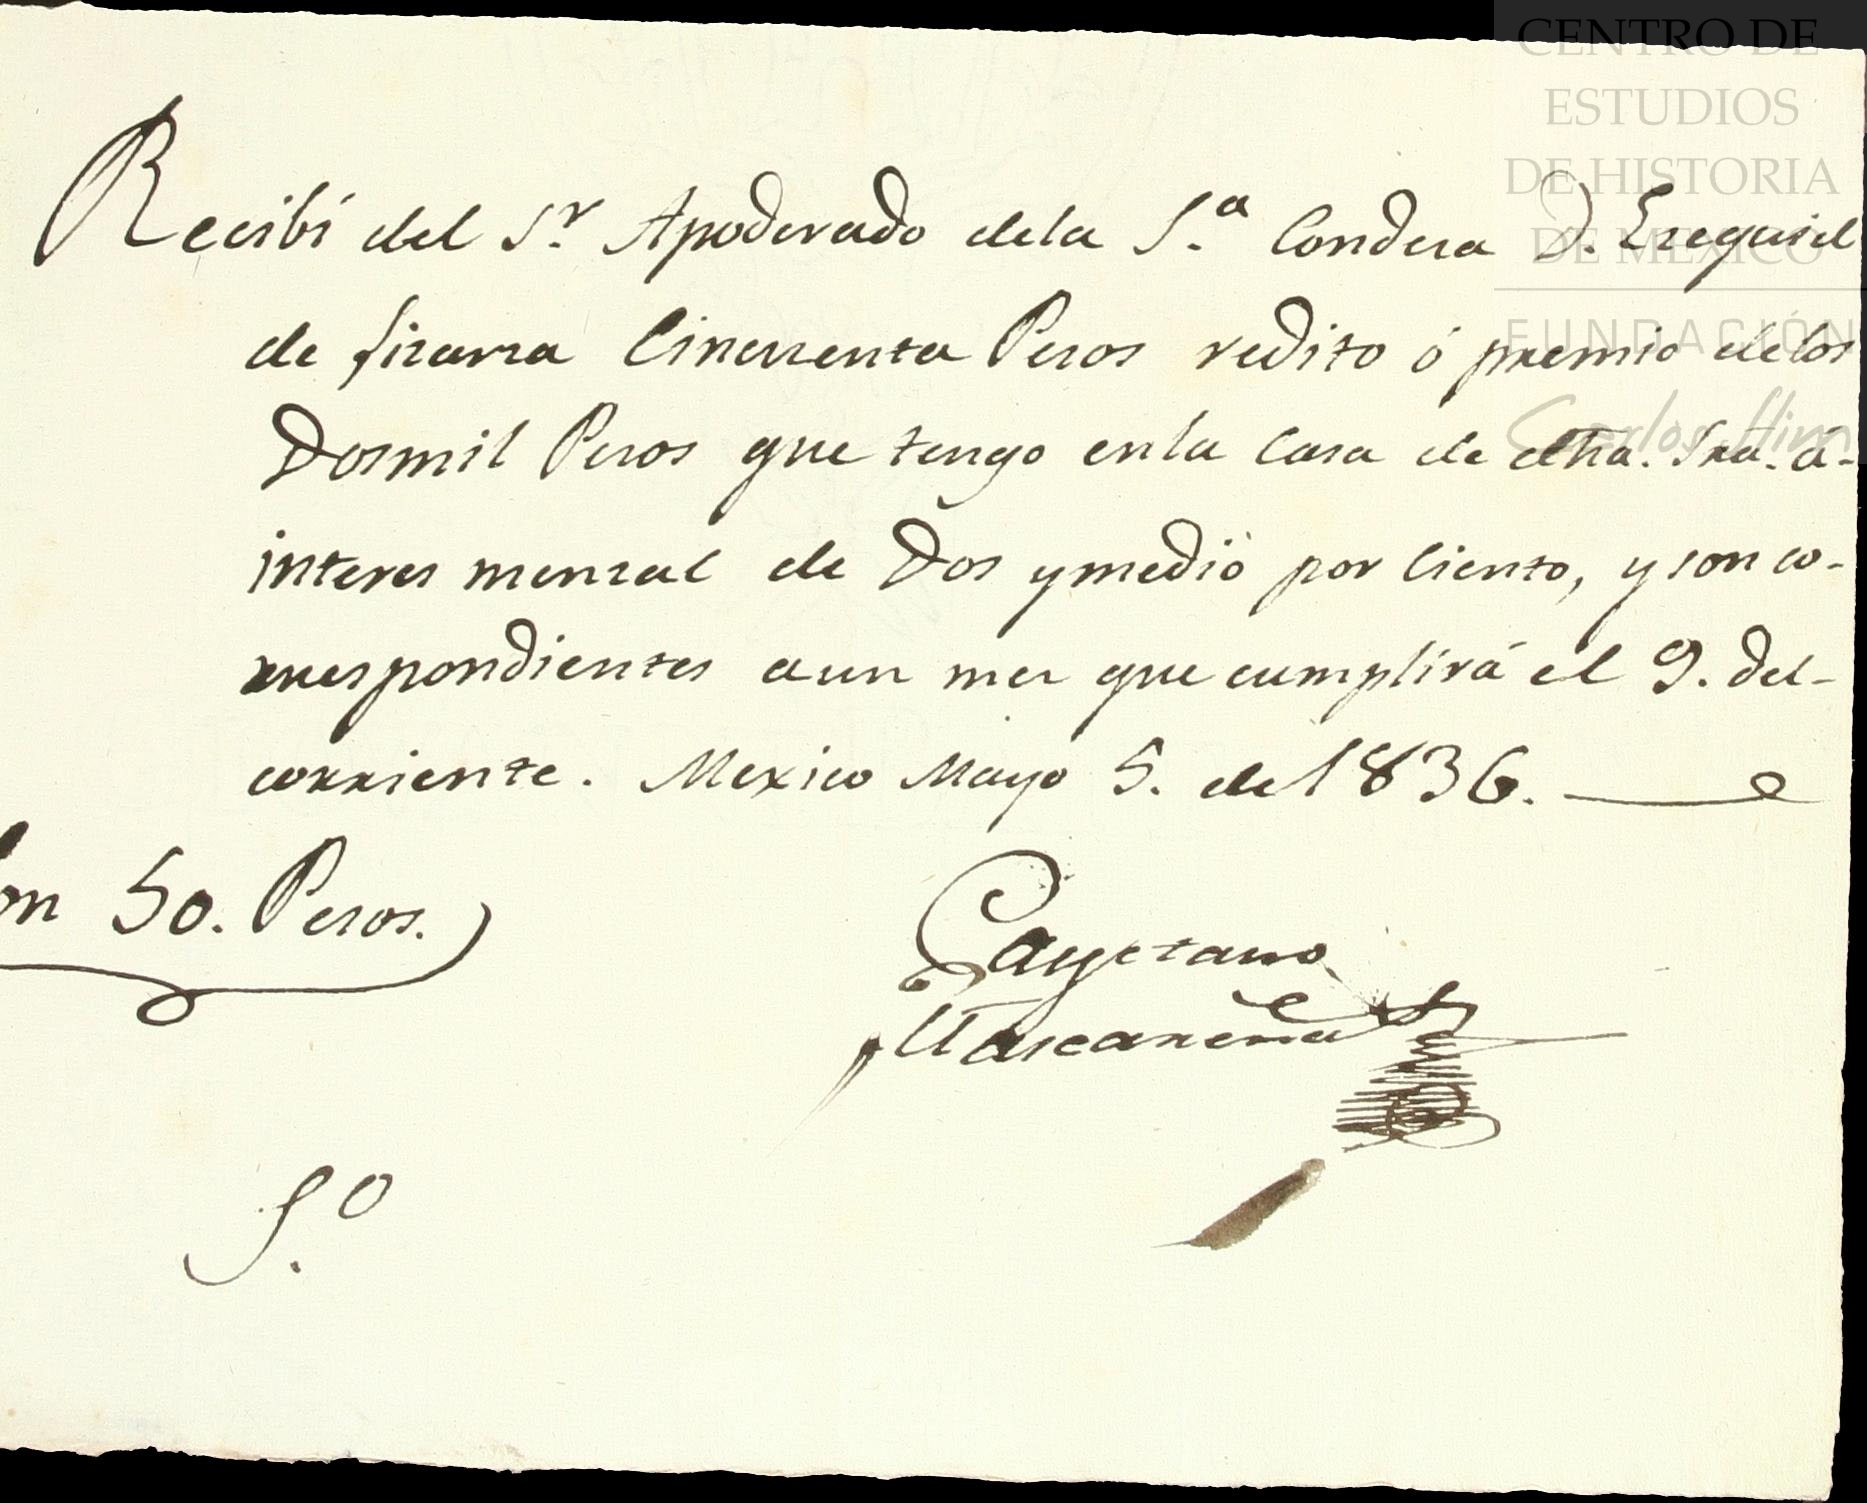 Recibí del S.r Apoderado dela S.a Condesa D. Esequiel
de Lizarza Cincuenta Pesos redito ó premio delos
Dosmil Pesos que tengo enla Casa de dha. Sra. á-
interes mensal de Dos ymedio por Ciento, y son co-
rrespondientes aun mes que cumplirá el 9. del-
corriente. Mexico Mayo 5. de 1836.
Son 50. Pesos.
Cayetano
Mascareñas
S.o
CENTRO DE
ESTUDIOS
DE HISTORIA
DE MÉXICO
FUNDACIÓN
Carlos Slim